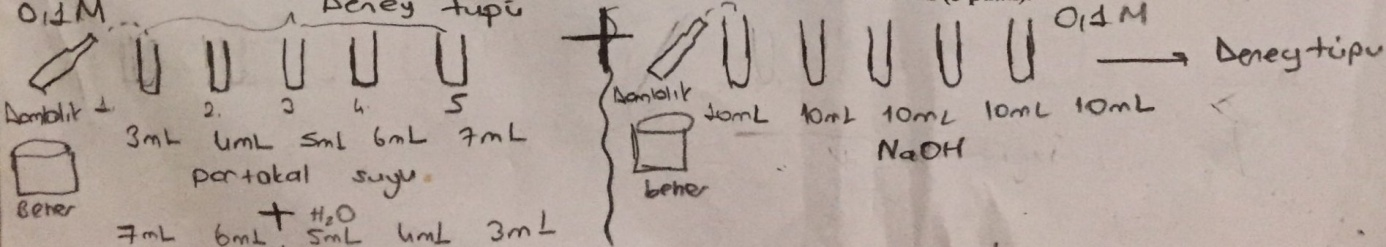 0,1M
Deney tüpü
Damlalık 1. 2. 3 4. 5
3mL 4mL 5mL 6mL 7mL
portakal suyu.
Beher
+ H₂O
7mL 6mL 5mL 4mL 3mL
+
0,1M
→ Deney tüpü
Damlalık
10mL 10mL 10mL 10mL 10mL
NaOH
beher